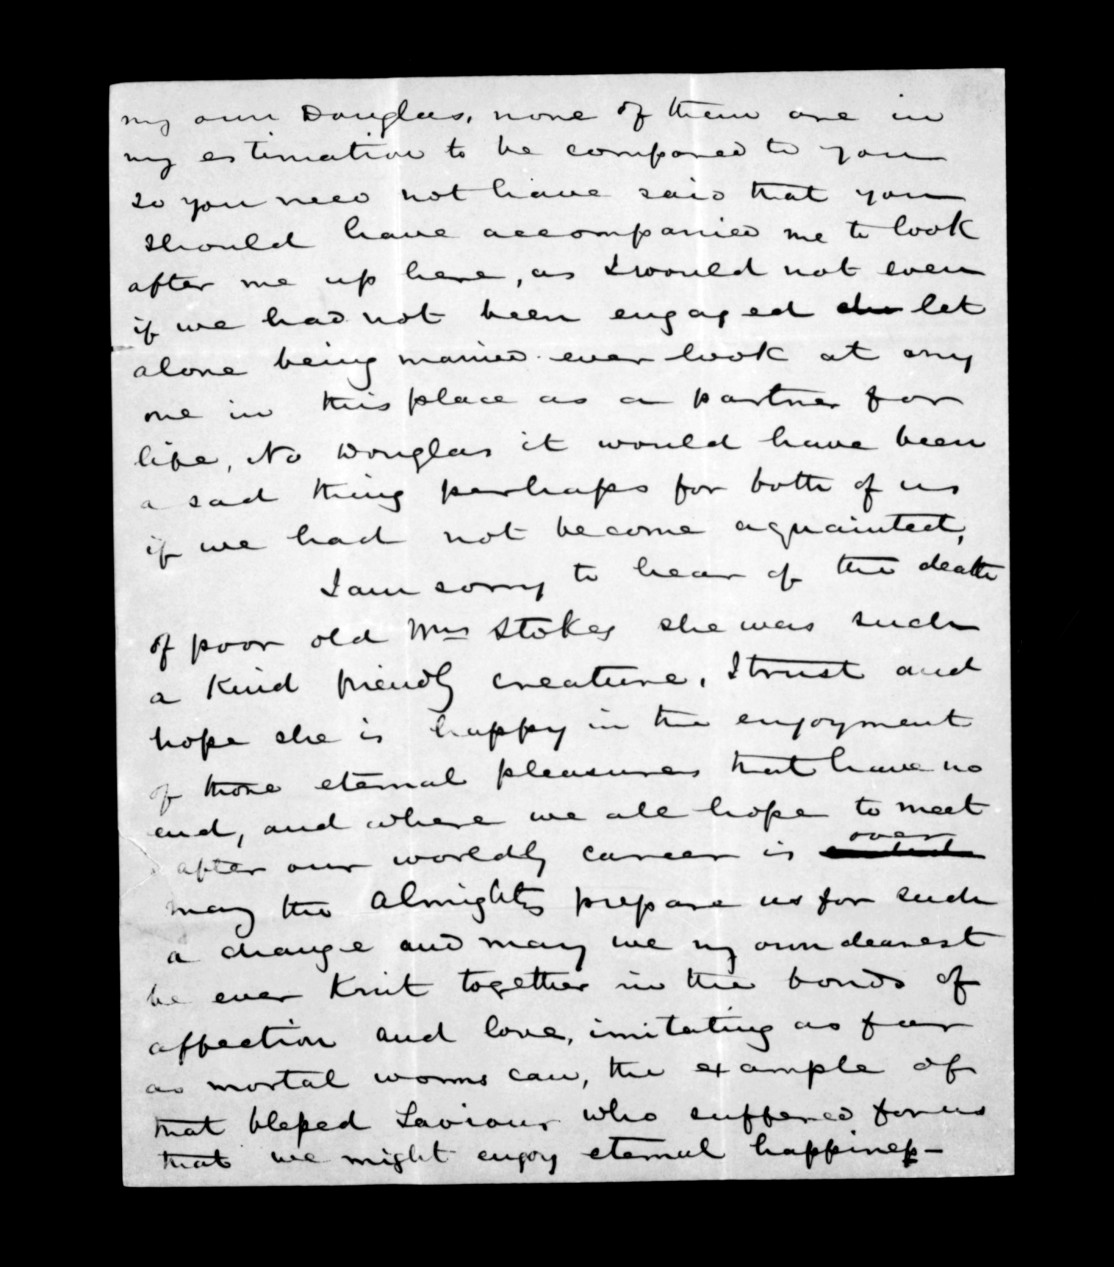 my own Douglas, none of them are in
my estimation to be compared to you
so you need not have said that you
should have accompanied me to look
after me up here, as I would not even
if we had not been engaged let
alone being married ever look at any
one in this place as a partner for
life, No Douglas it would have been
a sad thing perhaps for both of us
if we had not become aquainted,
I am sorry to hear of the death
of poor old Mrs Stokes she was such
a kind friendly creature, I trust and
hope she is happy in the enjoyment
of those eternal pleasures that have no
end, and where we all hope to meet
over
after our worldly career is
may the Almighty prepare us for such
a change and may we my own dearest
be ever Knit together in the bonds of
affection and love, imitating as far
as mortal worms can, the example of
that blessed Saviour who suffered for us
that we might enjoy eternal happiness—